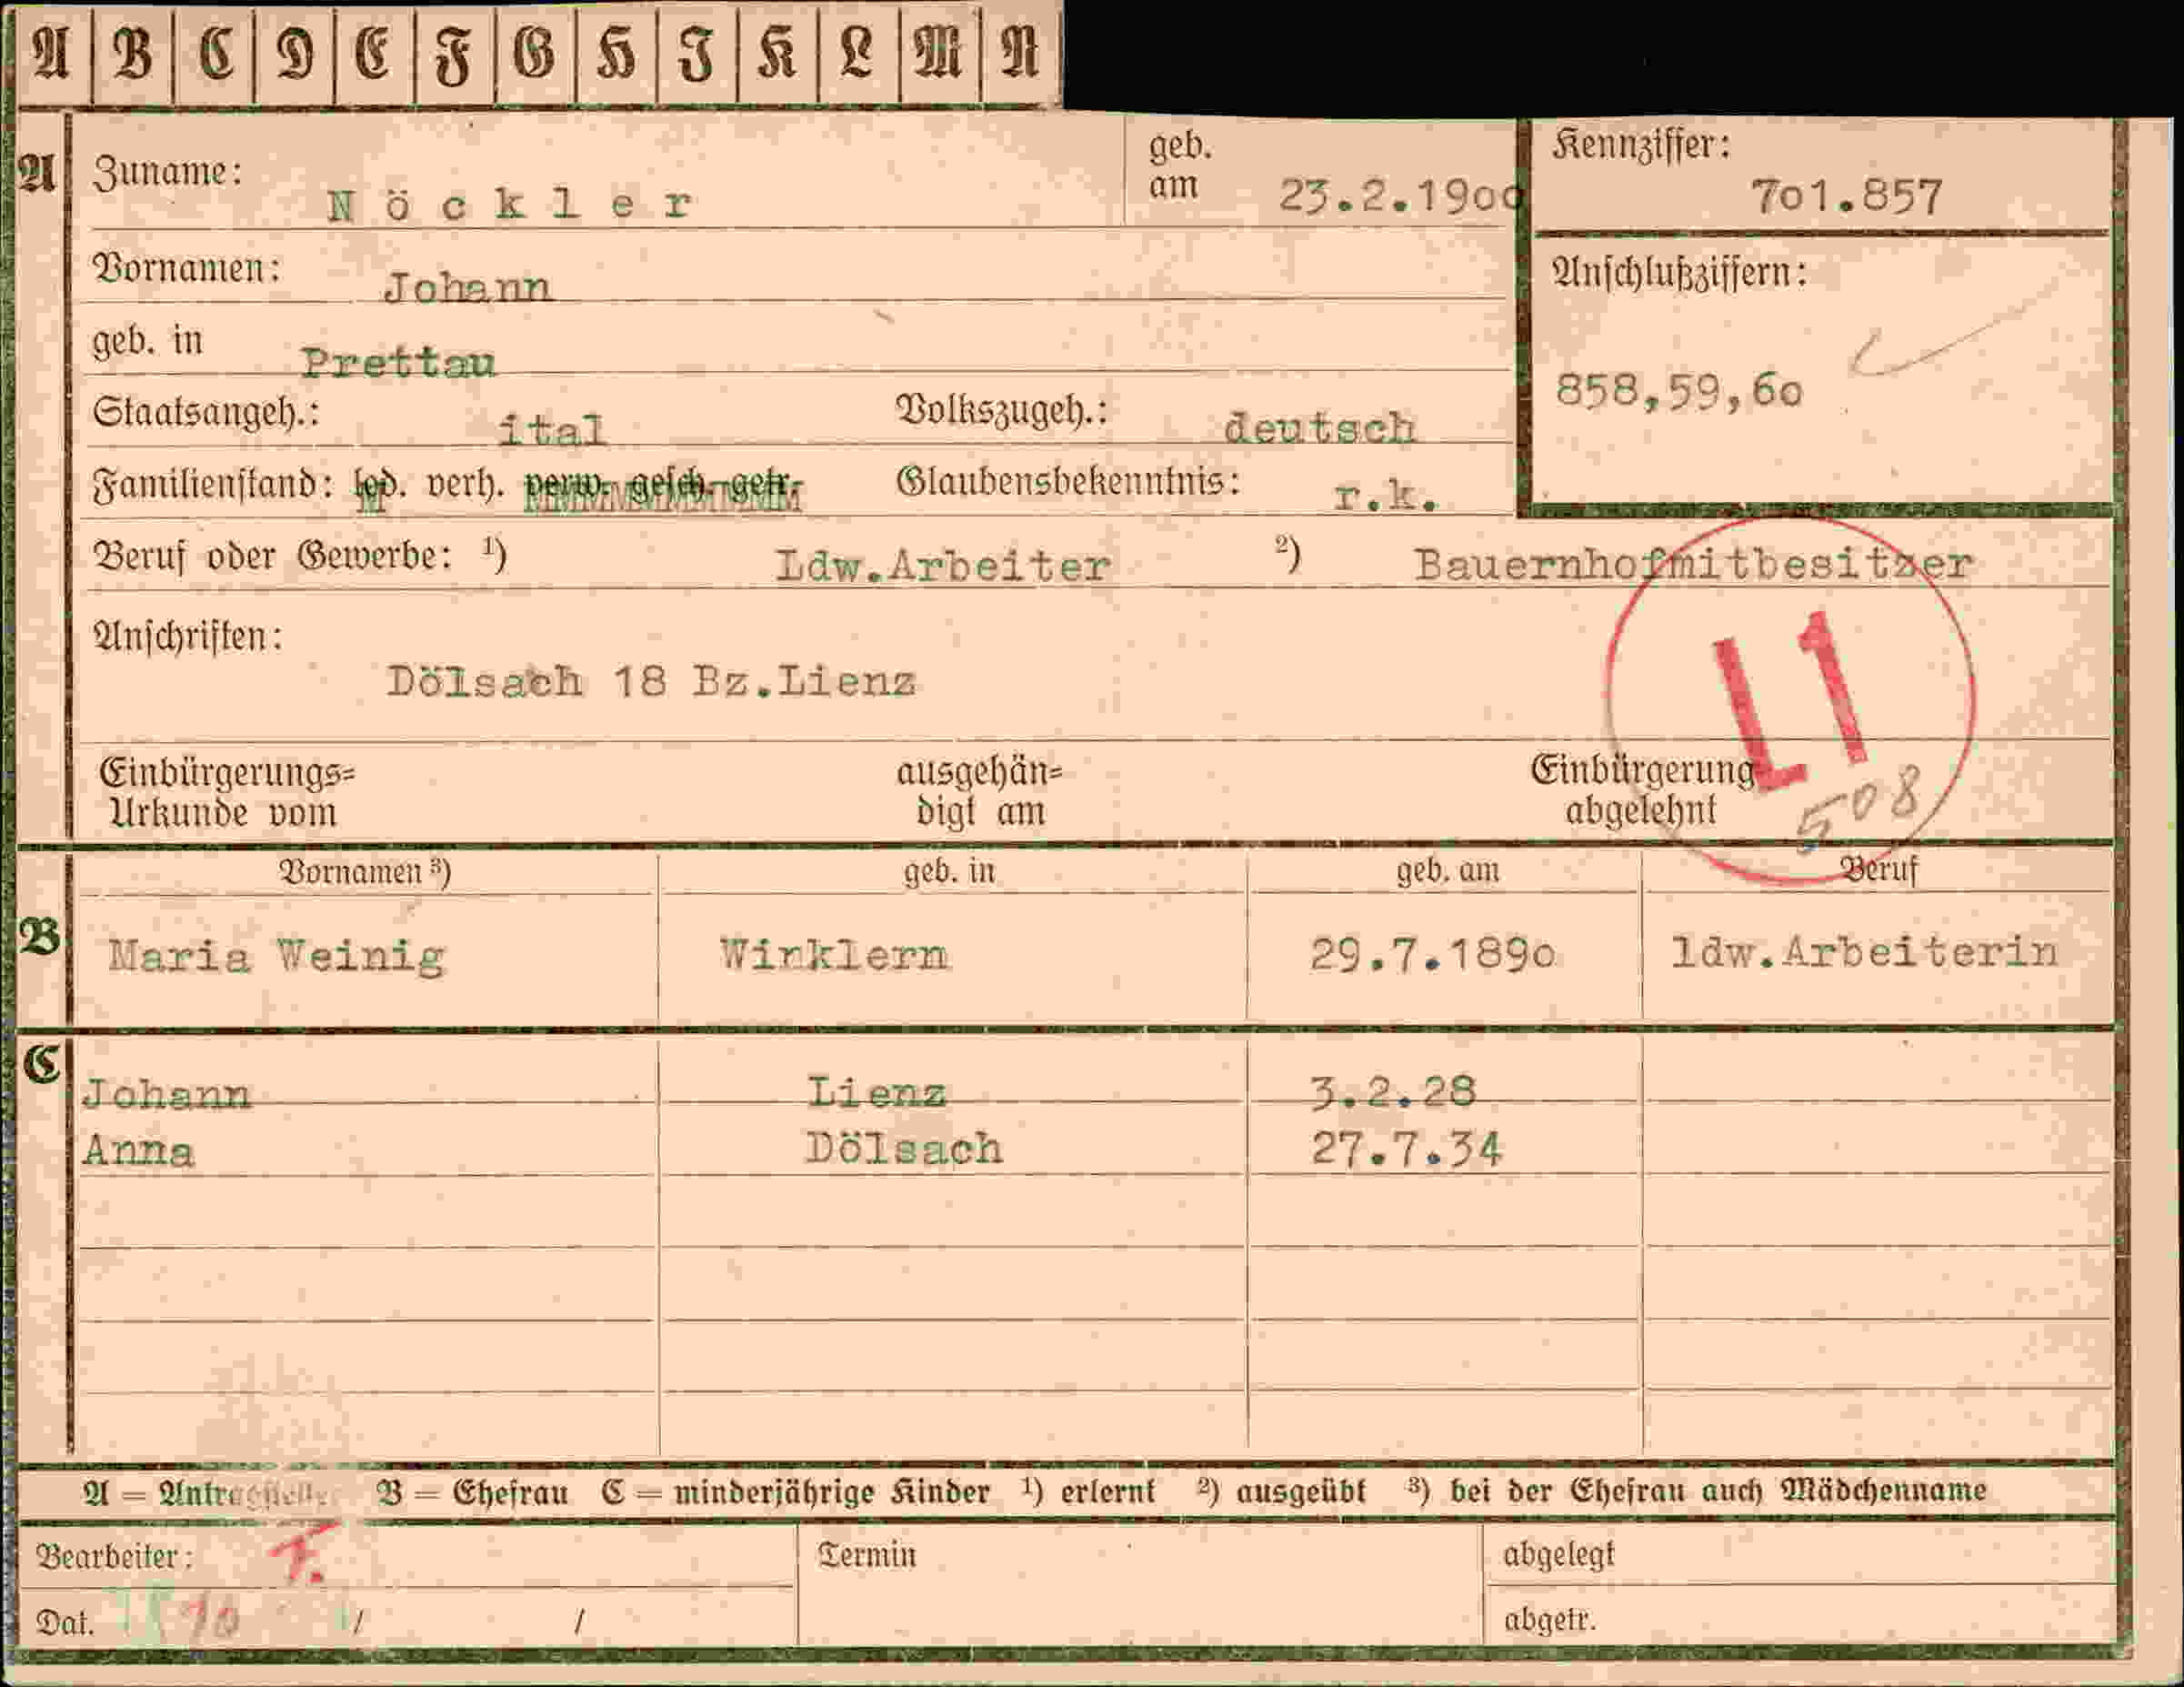 A B C D E F G H I K L M N
A Zuname: Nöckler geb. am 23.2.1900
Kennziffer: 701.857
Vornamen: Johann
Anschlußziffern: 858,59,60
geb. in Prettau
Staatsangeh.: ital Volkszugeh.: deutsch
Familienstand: led. verh. verw. gesch. getr. Glaubensbekenntnis: r.k.
Beruf oder Gewerbe: 1) Ldw.Arbeiter 2) Bauernhofmitbesitzer
Anschriften:
Dölsach 18 Bz.Lienz
L1
508
Einbürgerungs= ausgehän= Einbürgerung
Urkunde vom digt am abgelehnt
Vornamen 3) geb. in geb. am Beruf
B Maria Weinig Winklern 29.7.1890 ldw.Arbeiterin
C Johann Lienz 3.2.28
Anna Dölsach 27.7.34
A = Antragsteller B = Ehefrau C = minderjährige Kinder 1) erlernt 2) ausgeübt 3) bei der Ehefrau auch Mädchenname
Bearbeiter: F. Termin abgelegt
Dat. / / abgetr.